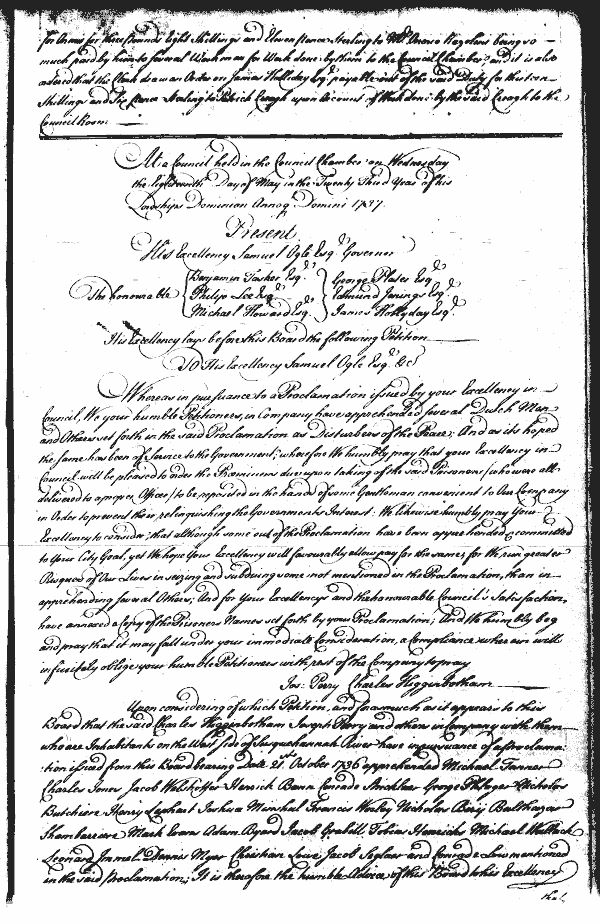 for Orms for three pounds Eight Shillings and Eleven pence Sterling to Mr. Onorio Razolini being so
much paid by him to several Workmen for Work done by them to the Council Chamber and it is also
ordered that the Clerk draw an Order on James Holliday Esqr. payable out of the said Duty for thirteen
Shillings and Six pence Sterling to Patrick Creagh upon Account of Work done by the said Creagh to the
Council Room
At a Council held in the Council Chamber on Wednesday
the Eighteenth Day of May in the Twenty Third Year of his
Lordships Dominion Annoq. Domini 1737.
Present
His Excellency Samuel Ogle Esqr. Governor
The honourable
Benjamin Tasker Esqr.
Philip Lee Esqr.
Michael Howard Esqr.
George Plater Esqr.
Edmund Jenings Esqr.
James Hollyday Esqr.
His Excellency lays before this Board the following Petition
To His Excellency Samuel Ogle Esqr. &c
Whereas in pursuance to a Proclamation issued by your Excellency in
Council, We your humble Petitioners, in Company have apprehended several Dutch Men
and Others set forth in the said Proclamation as Disturbers of the Peace; And as its hoped
the same has been of Service to the Government; wherefore We humbly pray that your Excellency in
Council will be pleased to order the Præmiums due upon taking of the said Persons (who were all
delivered to a proper Officer) to be reposited in the hands of some Gentleman convenient to Our Company
in Order to prevent their relinquishing the Governments Interest: We likewise humbly pray Your
Excellency to consider, that although some out of the Proclamation have been apprehended & committed
to Your City Goal, yet We hope Your Excellency will favourably allow pay for the same; for We run greater
Risques of Our Lives in seizing and subdueing some not mentioned in the Proclamation, than in
apprehending several Others; And for Your Excellencys and the honourable Council's Satisfaction,
have annexed a Copy of the Prisoners Names set forth by your Proclamation; And We humbly beg
and pray that it may fall under your immediate Consideration, a Compliance wherein will
infinitely oblige your humble Petitioners with rest of the Company to pray
Jos: Perry Charles Higgenbotham
Upon considering of which Petition, and forasmuch as it appears to this
Board that the said Charles Higginbotham Joseph Perry and others in Company with them
who are Inhabitants on the West side of Susquehannah River have in pursuance of a Proclama-
tion issued from this Board bearing Date 21st October 1736 apprehended Michael Tanner
Charles Jones Jacob Welshoffer Henrick Bann Conrade Stricklaer George Philayer Nicholas
Butchiere Henry Lephart Joshua Minshal Francis Worley Nicholas Birij Balthazar
Shamberriere Mark Evans Adam Byard Jacob Grabill Tobias Henricks Michael Wallack
Leonard Immel Dennis Myer Christian Lowe Jacob Seglaer and Conrade Low mentioned
in the said Proclamation; It is therefore the humble Advice of this Board to his Excellency
that